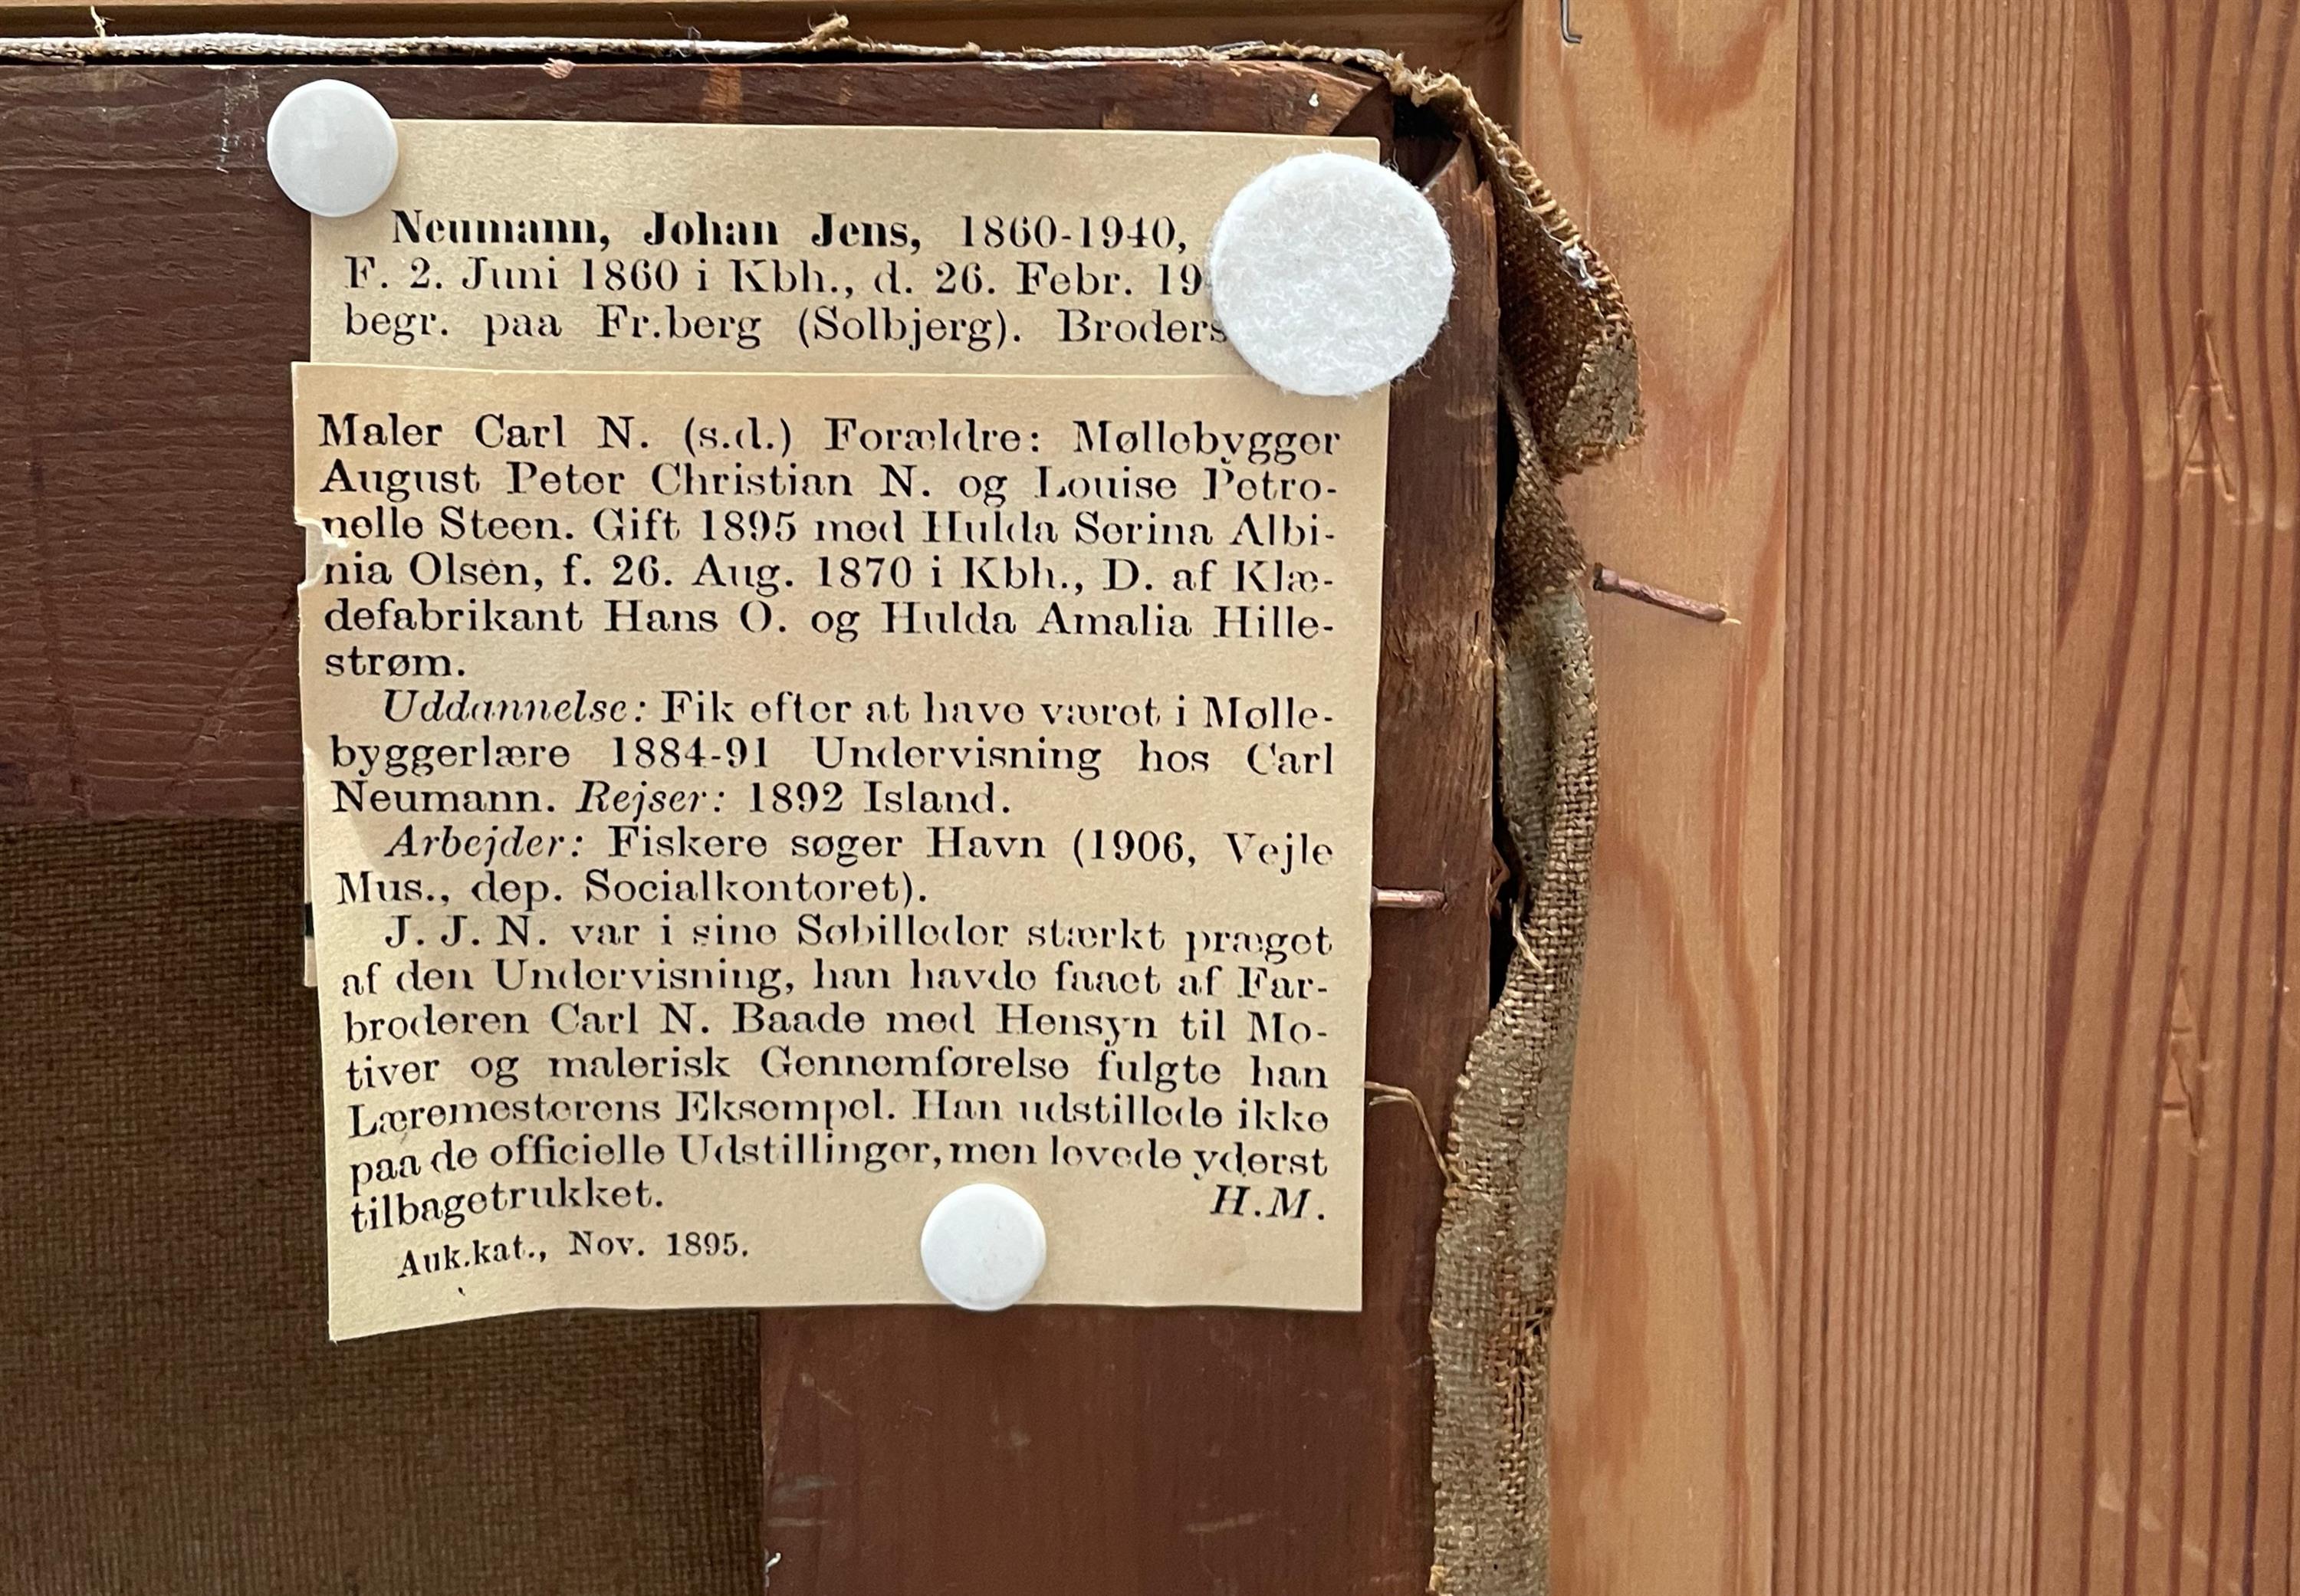 Neumann, Johan Jens, 1860-1940,
F. 2. Juni 1860 i Kbh., d. 26. Febr. 19
begr. paa Fr.berg (Solbjerg). Broders
Maler Carl N. (s.d.) Forældre: Møllebygger
August Peter Christian N. og Louise Petro-
nelle Steen. Gift 1895 med Hulda Serina Albi-
nia Olsen, f. 26. Aug. 1870 i Kbh., D. af Klæ-
defabrikant Hans O. og Hulda Amalia Hille-
strøm.
Uddannelse: Fik efter at have været i Mølle-
byggerlære 1884-91 Undervisning hos Carl
Neumann. Rejser: 1892 Island.
Arbejder: Fiskere søger Havn (1906, Vejle
Mus., dep. Socialkontoret).
J. J. N. var i sine Søbilleder stærkt præget
af den Undervisning, han havde faaet af Far-
broderen Carl N. Baade med Hensyn til Mo-
tiver og malerisk Gennemførelse fulgte han
Læremesterens Eksempel. Han udstillede ikke
paa de officielle Udstillinger, men levede yderst
tilbagetrukket. H.M.
Auk.kat., Nov. 1895.